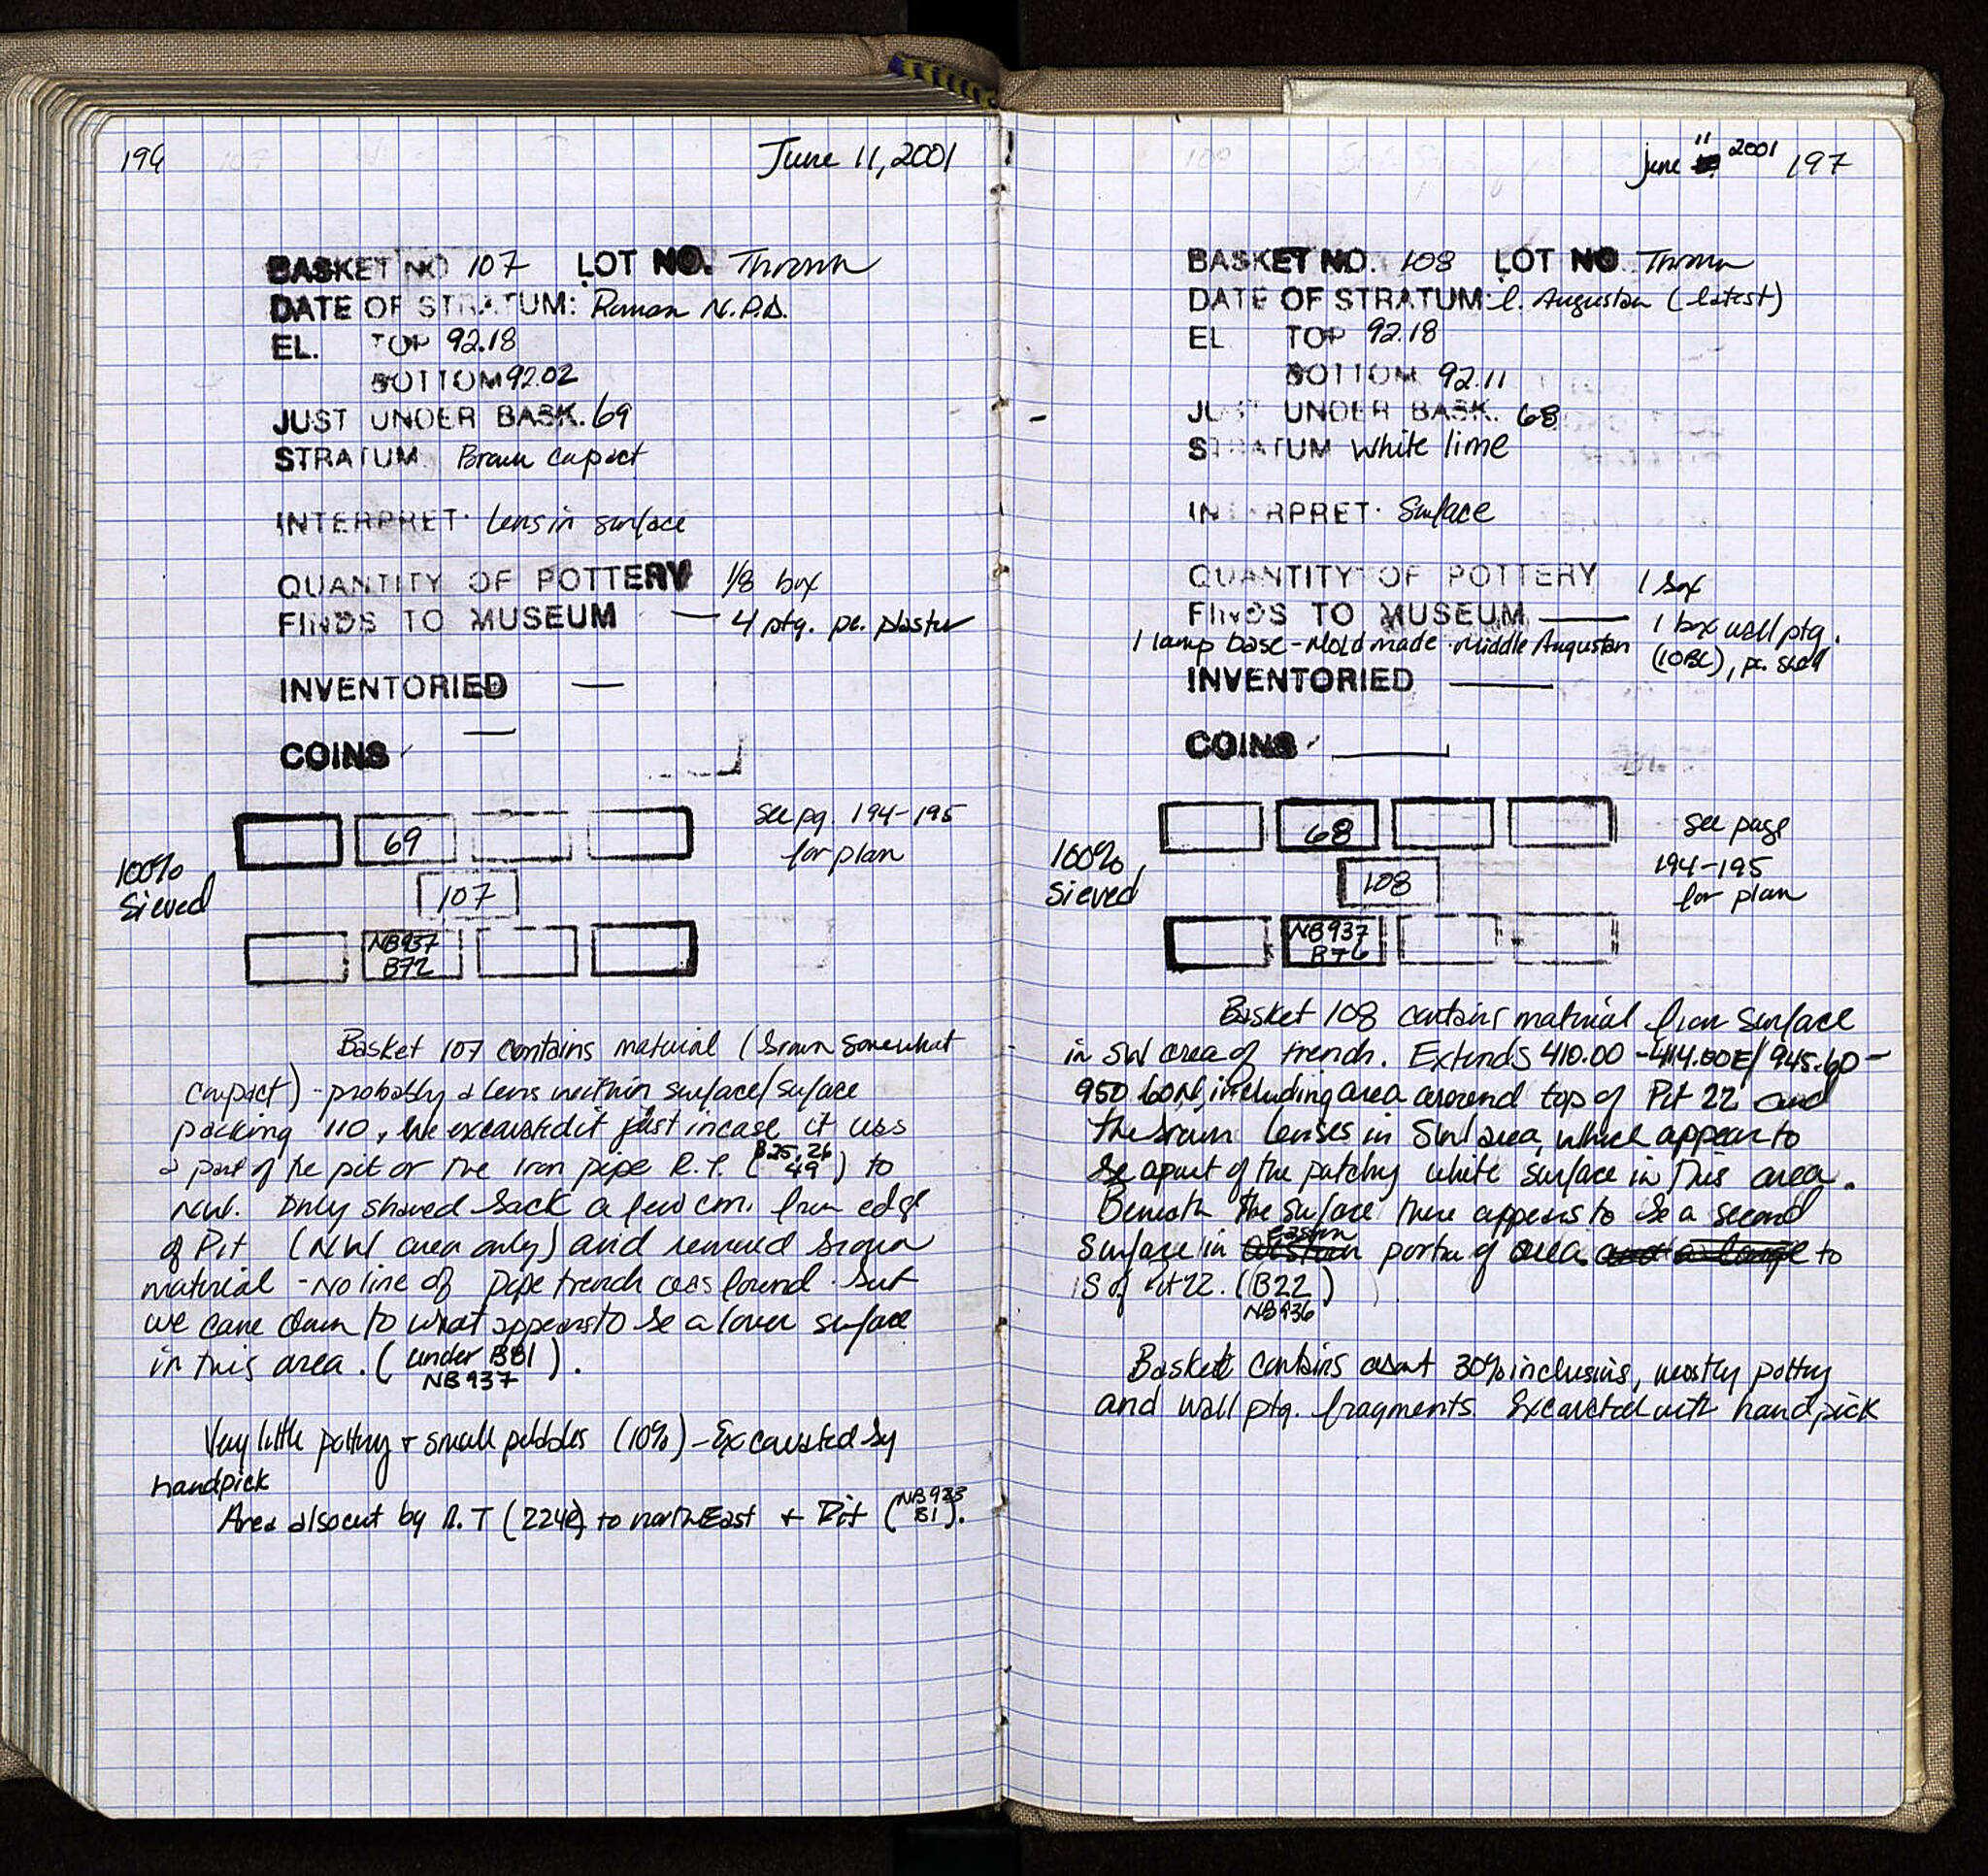 196 June 11, 2001
BASKET NO 107 LOT NO. Thrown
DATE OF STRATUM: Roman N.P.D.
EL. TOP 92.18
BOTTOM 92.02
JUST UNDER BASK. 69
STRATUM Brown copact
INTERPRET. Lens in surface
QUANTITY OF POTTERY 1/8 box
FINDS TO MUSEUM — 4 ptg. pc. plaster
INVENTORIED —
COINS —
69
see pg. 194-195
for plan
100%
Sieved
107
NB937
B72
Basket 107 contains material (brown somewhat
cmpact) - probably a lens within surface/surface
packing 110, We excavated it just incase it was
a part of the pit or the iron pipe R.T. (B25, 26
49) to
NW. Only shaved back a few cm. from edge
of Pit (NW area only) and removed brown
material - No line of pipe trench was found. but
we came down to what appears to be a lower surface
in this area. (under B81
NB937).
Very little pottery + small pebbles (10%) - Excavated by
handpick
Area also cut by R.T (224e) to northEast + Pit (NB933
B1).
June 11, 2001 197
BASKET NO. 108 LOT NO Thrown
DATE OF STRATUM: l. Augustan (latest)
EL TOP 92.18
BOTTOM 92.11
JUST UNDER BASK. 68
STRATUM White lime
INTERPRET. Surface
QUANTITY OF POTTERY 1 box
FINDS TO MUSEUM — 1 box wall ptg.
1 lamp base - Mold made - Middle Augustan (10BC), pc. shell
INVENTORIED —
COINS —
68
see page
194-195
for plan
100%
Sieved
108
NB937
B76
Basket 108 contains material from surface
in SW area of trench. Extends 410.00 - 414.00E/ 945.60 -
950.60N, including area around top of Pit 22 and
the brown lenses in SW area, which appear to
be apart of the patchy white surface in this area.
Beneath the surface there appears to be a second
surface in eastern portion of area to
S of Pit 22. (B22
NB936)
Basket contains about 30% inclusins, mostly pottery
and wall ptg. fragments. Excavated with handpick